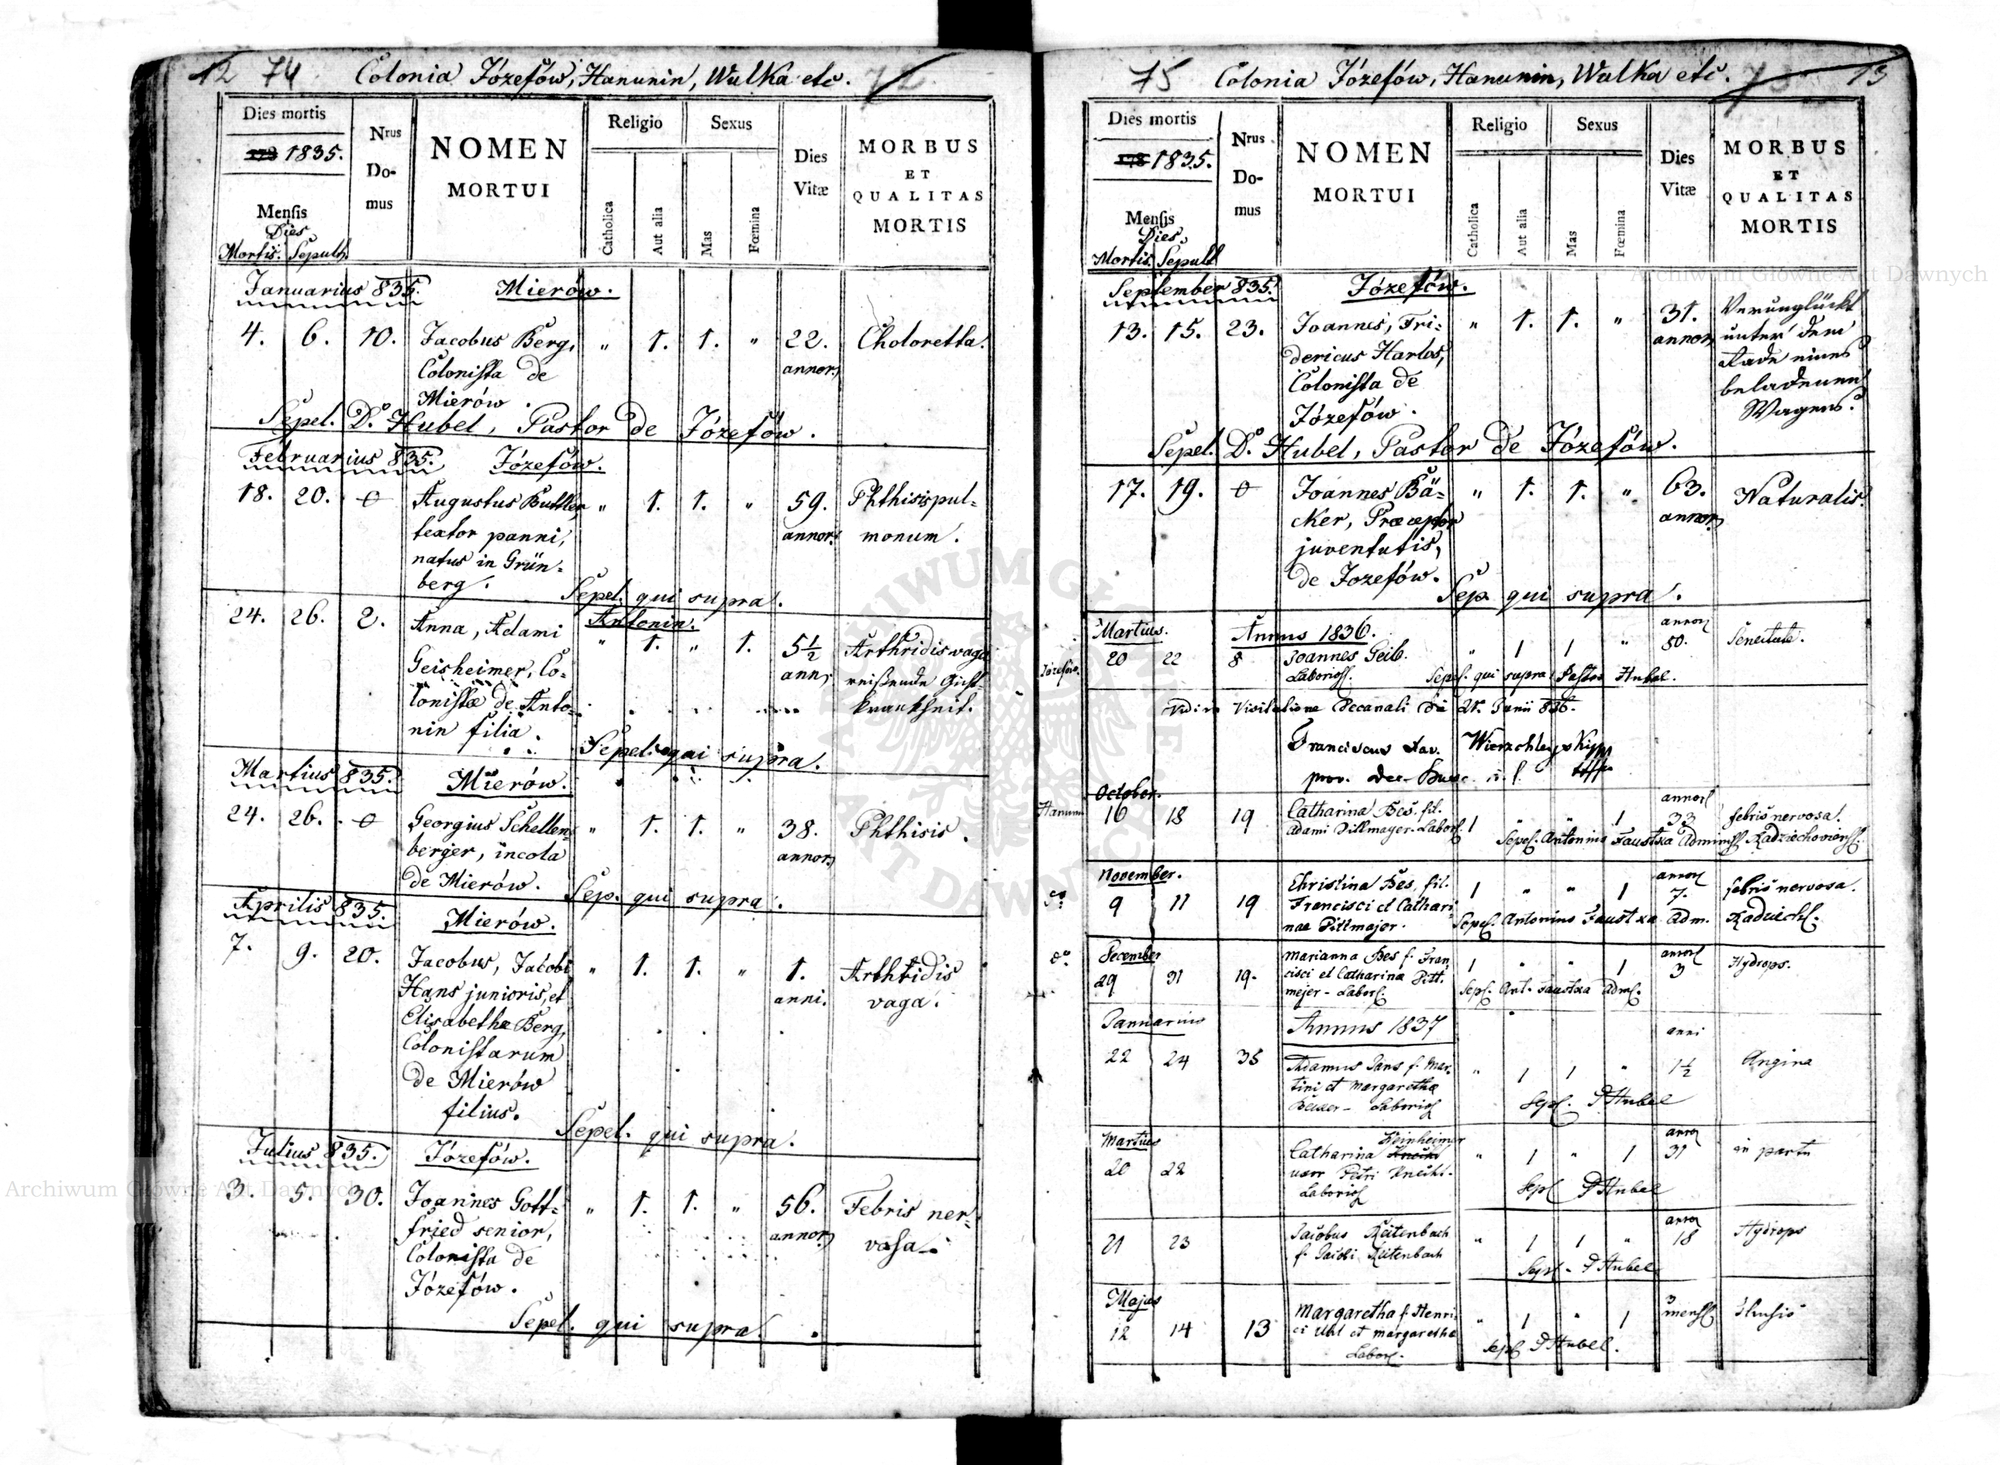 12 74 Colonia Józefów, Hanunin, Wulka etc. 72
Dies mortis
178 1835.
Nrus
Do-
mus
NOMEN
MORTUI
Religio
Sexus
Dies
Vitæ
MORBUS
ET
QUALITAS
MORTIS
Mensis
Dies
Mortis. Sepult.
Catholica
Aut alia
Mas
Fœmina
Januarius 835. Mierów.
4. 6. 10. Jacobus Berg, " 1. 1. " 22. Choloretta.
Colonista de annor.
Mierów.
Sepel. Do. Hubel, Pastor de Józefów.
Februarius 835. Józefów.
18. 20. 0 Augustus Buttler, " 1. 1. " 59. Phthisis pul-
textor panni, annor. monum.
natus in Grün-
berg.
Sepel. qui supra.
Antonin.
24. 26. 2. Anna, Adami " 1. " 1. 5½ Arthridis vaga
Geisheimer, Co- ann. reißende Gicht-
lonistæ de Anto- krankheit.
nin filia.
Sepel. qui supra.
Martius 835. Mierów.
24. 26. 0 Georgius Schellen- " 1. 1. " 38. Phthisis.
berger, incola annor.
de Mierów.
Sep. qui supra.
Aprilis 835. Mierów.
7. 9. 20. Jacobus, Jacobi " 1. 1. " 1. Arthridis
Hans junioris, et anni. vaga.
Elisabethæ Berg,
Colonistarum
de Mierów
filius.
Sepel. qui supra.
Julius 835. Józefów.
3. 5. 30. Joannes Gott- " 1. 1. " 56. Febris ner-
fried senior, annor. vosa.
Colonista de
Józefów.
Sepel. qui supra.
75 Colonia Józefów, Hanunin, Wulka etc. 73 13
Dies mortis
178 1835.
Nrus
Do-
mus
NOMEN
MORTUI
Religio
Sexus
Dies
Vitæ
MORBUS
ET
QUALITAS
MORTIS
Mensis
Dies
Mortis Sepult
Catholica
Aut alia
Mas
Fœmina
September 835. Józefów.
13. 15. 23. Joannes, Fri- " 1. 1. " 31. Verunglückt
dericus Harlos, annor. unter dem
Colonista de Rade eines
Józefów. beladenen
Wagens.
Sepel. Do. Hubel, Pastor de Józefów.
17. 19. 0 Joannes Bä- " 1. 1. " 63. Naturalis.
cker, Præceptor annor.
juventutis,
de Jozefów.
Sep. qui supra.
Martius. Annus 1836. annor
Józefów. 20 22 8 Joannes Geib. " 1 1 " 50. Senectute.
Laborios. Sepel. qui supra Pastor Hubel.
Vidi in Visitatione Decanali die 21. Junii 836.
Franciscus Xav. Wierzchleyski
October. annor
Hanunin 16 18 19 Catharina Bes. fil. 1 " " 1 33 febris nervosa.
Adami Dittmayer. Labor.
Sepel. Antonius Faustka Admin. Radziechoviens.
November. annor
do. 9 11 19 Christina Bes, fil. 1 " " 1 7. febris nervosa.
Francisci et Cathari-
nae Dittmajer. Sepel. Antonius Faustka Adm. Radziech.
December annor
do. 29 31 19. Marianna Bes f. Fran- 1 " " 1 3 Hydrops.
cisci et Catharina Ditt-
mejer - Labor. Sepel. Ant. Faustka Adm.
Januarius Annus 1837 anni
22 24 35 Adamus Jans f. Mar- " 1 1 " 1½ Angina
tini et Margarethæ
Laborios Sepel. P Hubel
Martius Keinheimer annor
20 22 Catharina " 1 " 1 31 in partu
uxor Petri Knecht-
Laborios Sepel P Hubel
annor
21 23 Jacobus Reitenbach " 1 1 " 18 Hydrops
f. Jacobi Reitenbach
Sepel - P Hubel
Majus 3
12 14 13 Margaretha f. Henri- " 1 " 1 mens.
ci Uhl et Margaretha
Labor. Sepel P Hubel.
Archiwum Główne Akt Dawnych
Archiwum Główne Akt Dawnych
ARCHIWUM GŁÓWNE AKT DAWNYCH